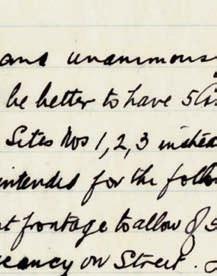 and unanimous
be better to have 5
Sites Nos 1, 2, 3 instea
intended for the follow
t frontage to allow of 5
cancy on Street.